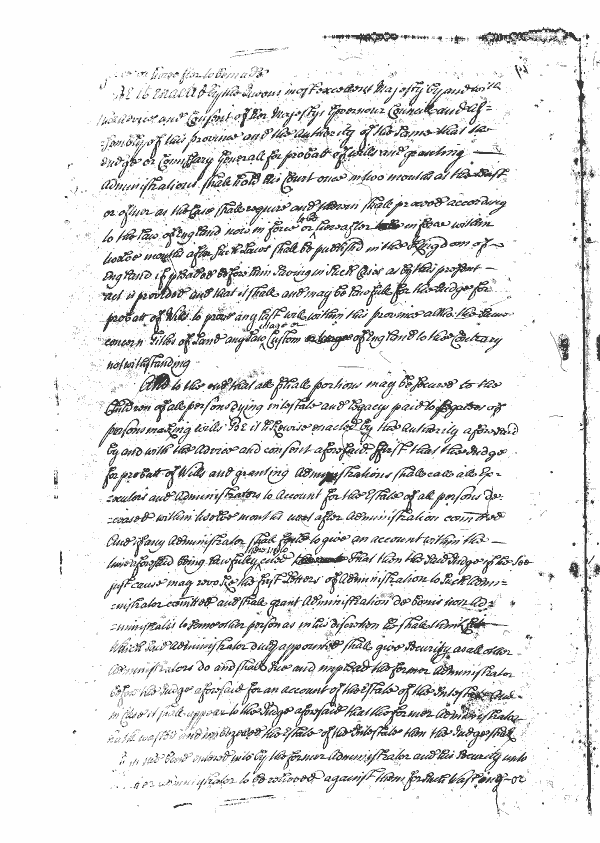 BE it Enacted by the Queens most excellent Majesty by and with
the advice and Consent of Her Majestys Governour Councill and As=
=sembly of this province and the Authority of the same that the
Judge or Comissary Generall for probatt of Wills and granting
Administrations shall hold his Court once in two months at the
or oftner as the Case shall require and therein shall proceed according
to the law of England now in force or hereafter to be in force within
twelve months after such Laws shall be published in the Kingdom of
England if pleaded before him saving in such Cases as by this present
act is provided and that it shall and may be lawfull for the Judge for
probatt of Wills to prove any last will within this province altho the same
concern Titles of Land any law Custom or usage of England to the Contrary
notwithstanding
And to the end that all filiale portions may be secured to the
Children of all persons dying intestate and legacys paid to legatees of
persons making wills BE it likewise enacted by the Authority aforesaid
by and with the Advice and consent aforesaid first that the Judge
for probatt of Wills and granting Administrations shall call all Ex=
=ecutors and Administrators to Account for the Estate of all persons de=
=ceased within twelve months next after Administration comitted
And if any Administrator shall to give an account within the
time aforesaid being lawfully cited thereunto that then the said Judge if he see
just cause may revoke the first Letters of Administration to such Adm=
=nistrator comitted and shall grant Administration de bonis non ad=
=ministratis to some other person as in his discretion he shall think fitt
which said Administrator duely appointed shall give security as all other
Administrators do and shall sue and implead the former Administrator
before the Judge aforesaid for an account of the Estate of the Intestate And
in Case it shall appear to the Judge aforesaid that the former Administrator
hath wasted and imbezzeled the Estate of the Intestate then the Judge shall
the bond entered into by the former Administrator and his Security unto
Administrator to be relieved against them for such Wasting or